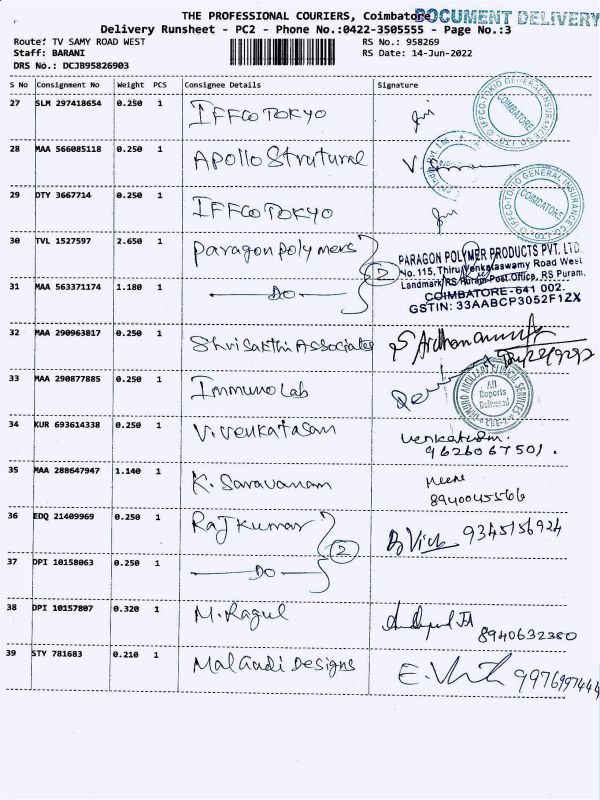 THE PROFESSIONAL COURIERS, Coimbatore
DOCUMENT DELIVERY
Delivery Runsheet - PC2 - Phone No.:0422-3505555 - Page No.:3
Route: TV SAMY ROAD WEST
RS No.: 958269
Staff: BARANI
RS Date: 14-Jun-2022
DRS No.: DCJB95826903
S No Consignment No Weight PCS Consignee Details Signature
27 SLM 297418654 0.250 1 IFFCO TOKYO
IFFCO-TOKIO GENERAL INSURANCE CO. LTD. COIMBATORE
28 MAA 566085118 0.250 1 Apollo Strutural
29 DTY 3667714 0.250 1 IFFCO TOKYO
IFFCO-TOKIO GENERAL INSURANCE COIMBATORE
30 TVL 1527597 2.650 1 Paragon polymers
2
PARAGON POLYMER PRODUCTS PVT. LTD.
No. 115, Thiru Venkataswamy Road West.
Landmark RS Puram Post Office, RS Puram,
COIMBATORE-641 002.
GSTIN: 33AABCP3052F1ZX
31 MAA 563371174 1.180 1 DO
32 MAA 290963817 0.250 1 Shri Sakthi Associates
33 MAA 290877885 0.250 1 Immuno Lab
IMMUNO ANCILLARY CLINICAL SERVICES
All
Reports
Delivered
CBE-2
34 KUR 693614338 0.250 1 V. Venkatasam
9626067501.
35 MAA 288647947 1.140 1 K. Saravanam
8940045566
36 EDQ 21409969 0.250 1 Raj Kumar
2
9345156924
37 DPI 10158063 0.250 1 DO
38 DPI 10157807 0.320 1 M. Ragul
8940632380
39 STY 781683 0.210 1 Malgudi Designs
9976997444